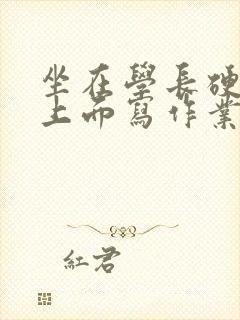 坐在學長硬
上而寫作業
紅君